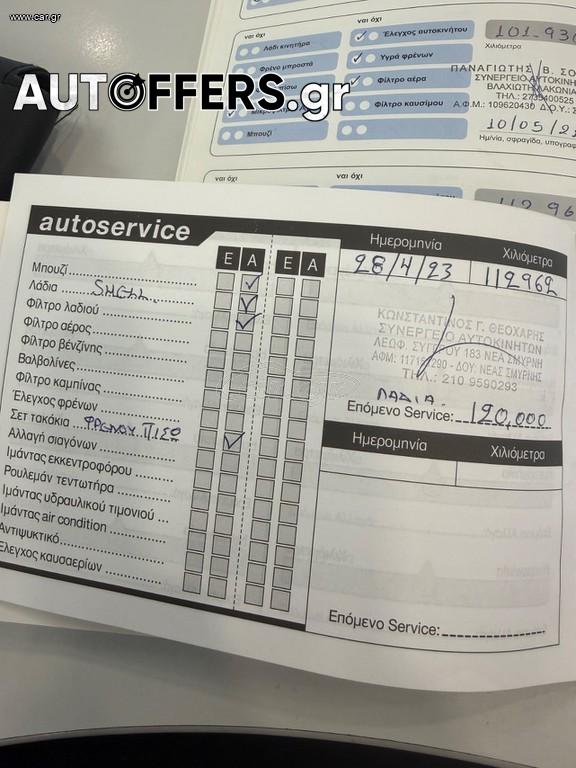 www.car.gr
ναι όχι
ναι όχι
Λάδι κινητήρα
Έλεγχος αυτοκινήτου
101-930
Χιλιόμετρα
Φρένο μπροστά
Υγρά φρένων
ΠΑΝΑΓΙΩΤΗΣ Β. ΣΟ
Φίλτρο αέρα
ΣΥΝΕΡΓΕΙΟ ΑΥΤΟΚΙΝ
ΒΛΑΧΙΩΤΗ ΛΑΚΩΝΙΑ
ΤΗΛ.: 2735400525
Φίλτρο καυσίμου
Α.Φ.Μ.: 109620436 Δ.Ο.Υ.: 2
Μπουζί
10/05/21
Ημ/νία, σφραγίδα, υπογραφ
AUTOFFERS.gr
ναι όχι
ναι όχι
112 96
autoservice
Ε Α Ε Α
Ημερομηνία
Χιλιόμετρα
28/4/23
112962
Μπουζί
Λάδια SHELL
Φίλτρο λαδιού
Φίλτρο αέρος
Φίλτρο βενζίνης
Βαλβολίνες
Φίλτρο καμπίνας
Έλεγχος φρένων
Σετ τακάκια ΦΡΕΝΟΥ ΠΙΣΩ
Αλλαγή σιαγόνων
Ιμάντας εκκεντροφόρου
Ρουλεμάν τεντωτήρα
Ιμάντας υδραυλικού τιμονιού
Ιμάντας air condition
Αντιψυκτικό
Έλεγχος καυσαερίων
ΚΩΝΣΤΑΝΤΙΝΟΣ Γ. ΘΕΟΧΑΡΗΣ
ΣΥΝΕΡΓΕΙΟ ΑΥΤΟΚΙΝΗΤΩΝ
ΛΕΩΦ. ΣΥΓΓΡΟΥ 183 ΝΕΑ ΣΜΥΡΝΗ
ΔΟΥ: ΝΕΑΣ ΣΜΥΡΝΗΣ
ΤΗΛ.: 210 9590293
ΛΑΔΙΑ
Επόμενο Service: 120,000
Ημερομηνία
Χιλιόμετρα
Επόμενο Service: